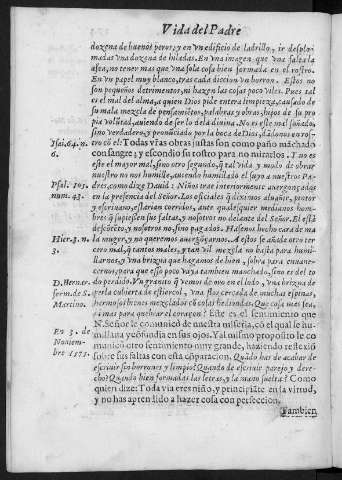 Vida del Padre
dozena de buenos peros; y en vn edificio de ladrillo, ir desplo-
madas vna dozena de hiladas. En vna imagen que vna sola la
afea, no tener mas que vna sola cosa bien formada en el rostro.
En vn papel muy blanco, tras cada diccion vn borron. Estos no
son pequeños detrimentos, ni hazen las cosas poco viles. Pues tal
es el mal del alma, a quien Dios pide entera limpieza, causado de
su mala mezcla de pensamiẽtos, palabras y obras, hijos de su pro
pia volũtad, auiendo de ser lo de la diuina. No es este mal soñado,
sino verdadero, y pronũciado por la boca de Dios, dãdonos en ros-
Isai. 64. n.
6.
tro cõ el: Todas vr̃as obras justas son como paño machado
con sangre; y escondiò su rostro para no mirarlos. Y no es
este el mayor mal, sino otro segundo, q̃ tal vida y modo de obrar
nuestro no nos humille, auiendo humillado el suyo a nuestros Pa-
Psal. 105.
num. 43.
dres, como dize Dauid: Niños trae interiormente auergonçados
en la presencia del Señor. Los oficiales q̃ diximos albañir, pintor
y escriuano, estarian corridos, ante qualesquier medianos hom-
bres q̃ supiessen sus faltas, y nosotros no delante del Señor. El está
descõtento, y nosotros no, sino pagados. Hademos hecho cara de ma
Hier. 3. n.
3.
la muger, y no queremos auergõçarnos. A estos se añade otro ter-
cero mal, q̃ tantos males, y tan vil mezcla no basta para humi-
llarnos, y vna brizna que hagamos de bien, sobra para enuane-
cernos, para que esso poco vaya tambien manchado, sino es del to
D. Bernar.
serm. de S.
Martino.
do perdido. Vn granito q̃ vemos de oro en el lodo, vna brizna de
perla cubierta de estiercol, vna flor cercada de muchas espinas,
hermosos bienes mezclados cõ cosas hediondas. Que cosa mas fea,
i mas para quebrar el coraçon? Este es el sentimiento que
En 3. de
Nouiem-
bre 1571.
N. Señor le comunicò de nuestra miseria, cõ el qual le hu-
millana y cõfundia en sus ojos. Y al mismo proposito le co-
municò otro sentimiento muy grande, haziendo reflexiõ
sobre sus faltas con esta cõparacion. Quãdo has de acabar de
escriuir sin borrones y limpio? Quando de escriuir parejo y dere-
cho? Quando bien formadas las letras, y la mano suelta? Como
quien dize: Toda via eres niño, y principiãte en la virtud,
y no has aprendido a hazer cosa con perfeccion.
Tambien